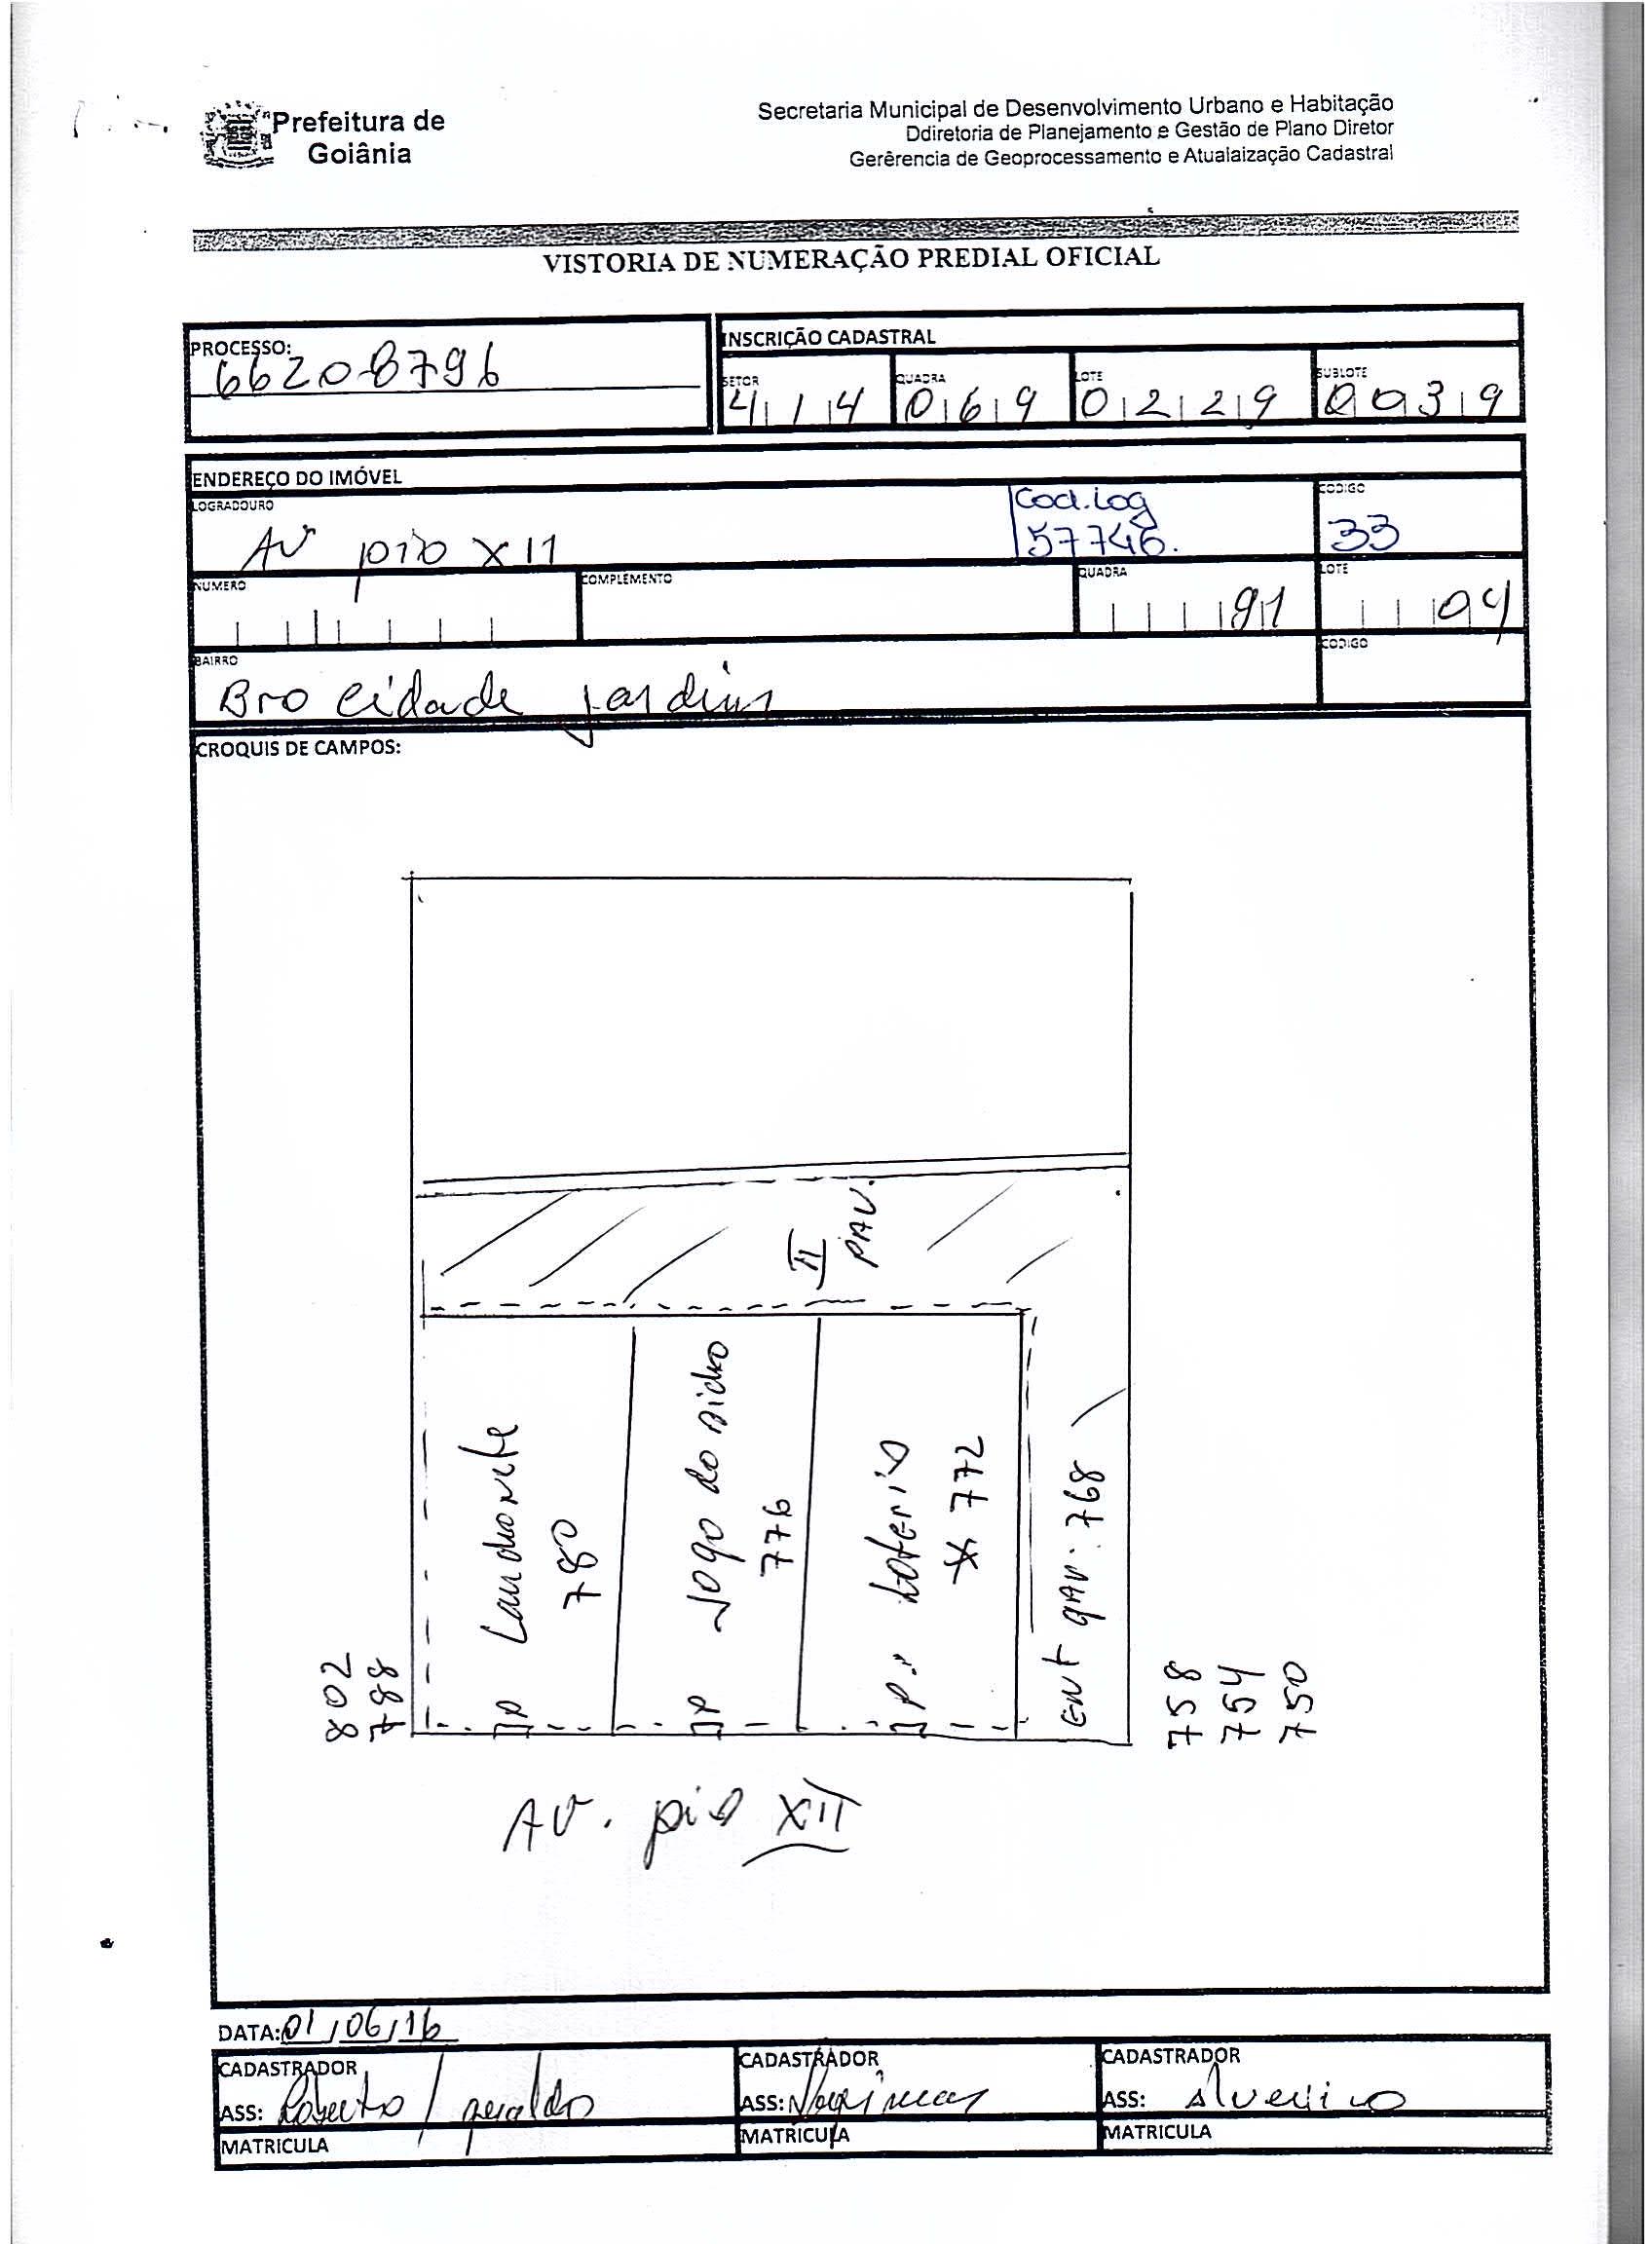 Prefeitura de
Goiânia
Secretaria Municipal de Desenvolvimento Urbano e Habitação
Ddiretoria de Planejamento e Gestão de Plano Diretor
Gerêrencia de Geoprocessamento e Atualaização Cadastral
VISTORIA DE NUMERAÇÃO PREDIAL OFICIAL
PROCESSO:
66208796
INSCRIÇÃO CADASTRAL
SETOR QUADRA LOTE SUBLOTE
414 069 0229 0039
ENDEREÇO DO IMÓVEL
LOGRADOURO
Av pio XII
Cod.Log
57746.
CODIGO
33
NUMERO
COMPLEMENTO
QUADRA
91
LOTE
04
BAIRRO
Bro Cidade Jardim
CODIGO
CROQUIS DE CAMPOS:
II PAV.
Lanchonete
780
Jogo do Bicho
776
Loteria
772
Ent gav. 768
802
788
758
754
750
AV. pio XII
DATA: 01/06/16
CADASTRADOR
ASS: Roberto / geraldo
MATRICULA
CADASTRADOR
ASS:
MATRICULA
CADASTRADOR
ASS:
MATRICULA